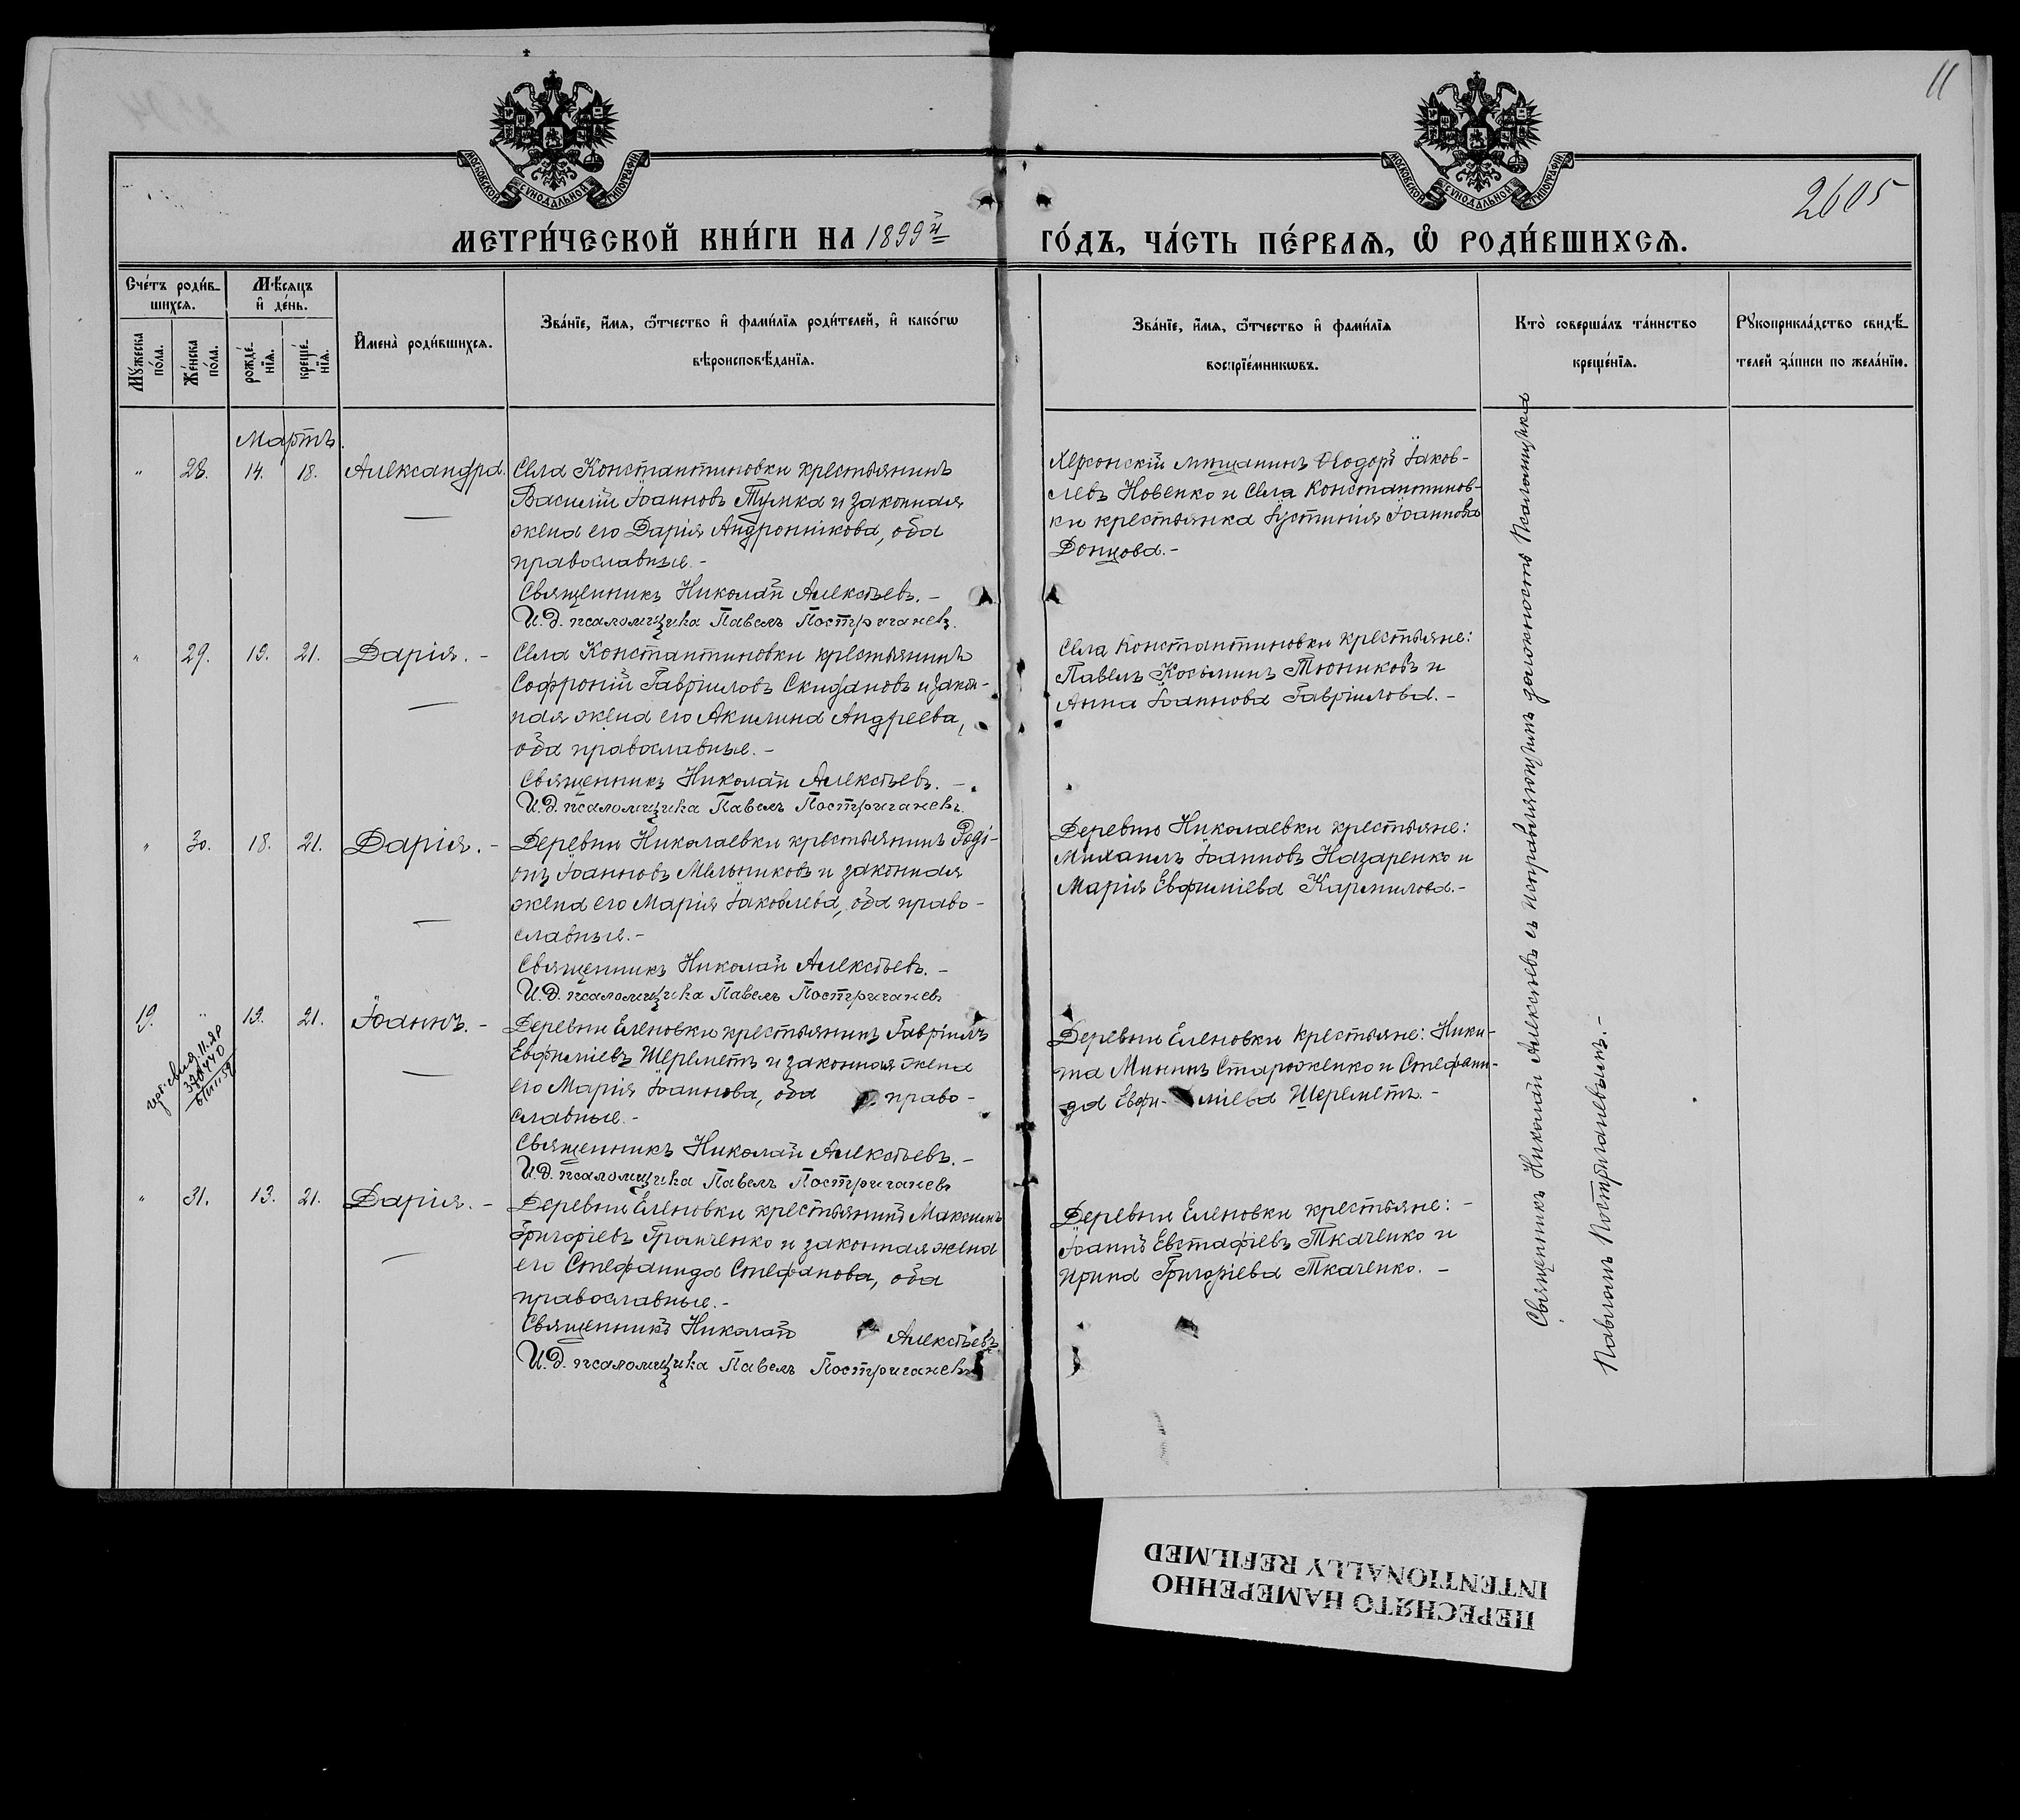 11
2605
МОСКОВСКОЙ СѴНОДАЛЬНОЙ ТИПОГРАФІИ
МОСКОВСКОЙ СѴНОДАЛЬНОЙ ТИПОГРАФІИ
МЕТРИ́ЧЕСКОЙ КНИ́ГИ НА 1899й
ГО́ДЪ, ЧА́СТЬ ПЕ́РВАѦ, Ѡ҆ РОДИ́ВШИХСѦ.
Сче́тъ роди́в-
шихсѧ.
Мѣ́сѧцъ
и҆ де́нь.
Мꙋ́жеска по́ла.
Же́нска по́ла.
рожде́-
нїѧ.
креще́-
нїѧ.
И҆мена̀ роди́вшихсѧ.
Зва́нїе, и҆́мѧ, ѻ҆́тчество и҆ фами́лїѧ роди́телей, и҆ како́гѡ
вѣроисповѣ́данїѧ.
Зва́нїе, и҆́мѧ, ѻ҆́тчество и҆ фами́лїѧ
воспрїе́мникѡвъ.
Кто̀ соверша́лъ та́инство
креще́нїѧ.
Рꙋкоприкла́дство свидѣ́-
телей за́писи по жела́нїю.
Мартъ.
" 28. 14. 18. Александра
Села Константиновки крестьянинъ
Василій Іоанновъ Тумка и законная
жена его Дарія Андроникова, оба
православные.-
Священникъ Николай Алексѣевъ.-
И.д. псаломщика Павелъ Постригачевъ.
Херсонскій мѣщанинъ Ѳеодоръ Іаков-
левъ Новенко и Села Константинов-
ки крестьянка Іустинія Іоаннова
Донцова.-
" 29. 19. 21. Дарія.-
Села Константиновки крестьянинъ
Софроній Гавріиловъ Скифановъ и закон-
ная жена его Акилина Андреева,
оба православные.-
Священникъ Николай Алексѣевъ.-
И.д. псаломщика Павелъ Постригачевъ.
Села Константиновки крестьяне:
Павелъ Косьминъ Тюниковъ и
Анна Іоаннова Гавріилова.-
" 30. 18. 21. Дарія.-
Деревни Николаевки крестьянинъ Родi-
онъ Іоанновъ Мельниковъ и законная
жена его Марія Іаковлева, оба право-
славные.-
Священникъ Николай Алексѣевъ.-
И.д. псаломщика Павелъ Постригачевъ
Деревни Николаевки крестьяне:
Михаилъ Іоанновъ Назаренко и
Марія Евфиміева Кармилова.-
19. " 19. 21. Іоаннъ.-
Деревни Еленовки крестьянинъ Гавріилъ
Евфиміевъ Шереметъ и законная жена
его Марія Іоаннова, оба право-
славные.-
Священникъ Николай Алексѣевъ.-
И.д. псаломщика Павелъ Постригачевъ
Деревни Еленовки крестьяне: Ники-
та Мининъ Староженко и Стефани-
да Евфи- міева Шереметъ.-
" 31. 13. 21. Дарія.-
Деревни Еленовки крестьянинъ Максимъ
Григоріевъ Громченко и законная жена
его Стефанида Стефанова, оба
православные.-
Священникъ Николай Алексѣевъ
И.д. псаломщика Павелъ Постригачевъ
Деревни Еленовки крестьяне:-
Іоаннъ Евстафіевъ Ткаченко и
Ирина Григоріева Ткаченко.-
Священникъ Николай Алексѣевъ съ Исправляющимъ должность Псаломщика
Павломъ Постригачевымъ.-
ПЕРЕСНЯТО НАМЕРЕННО
INTENTIONALLY REFILMED